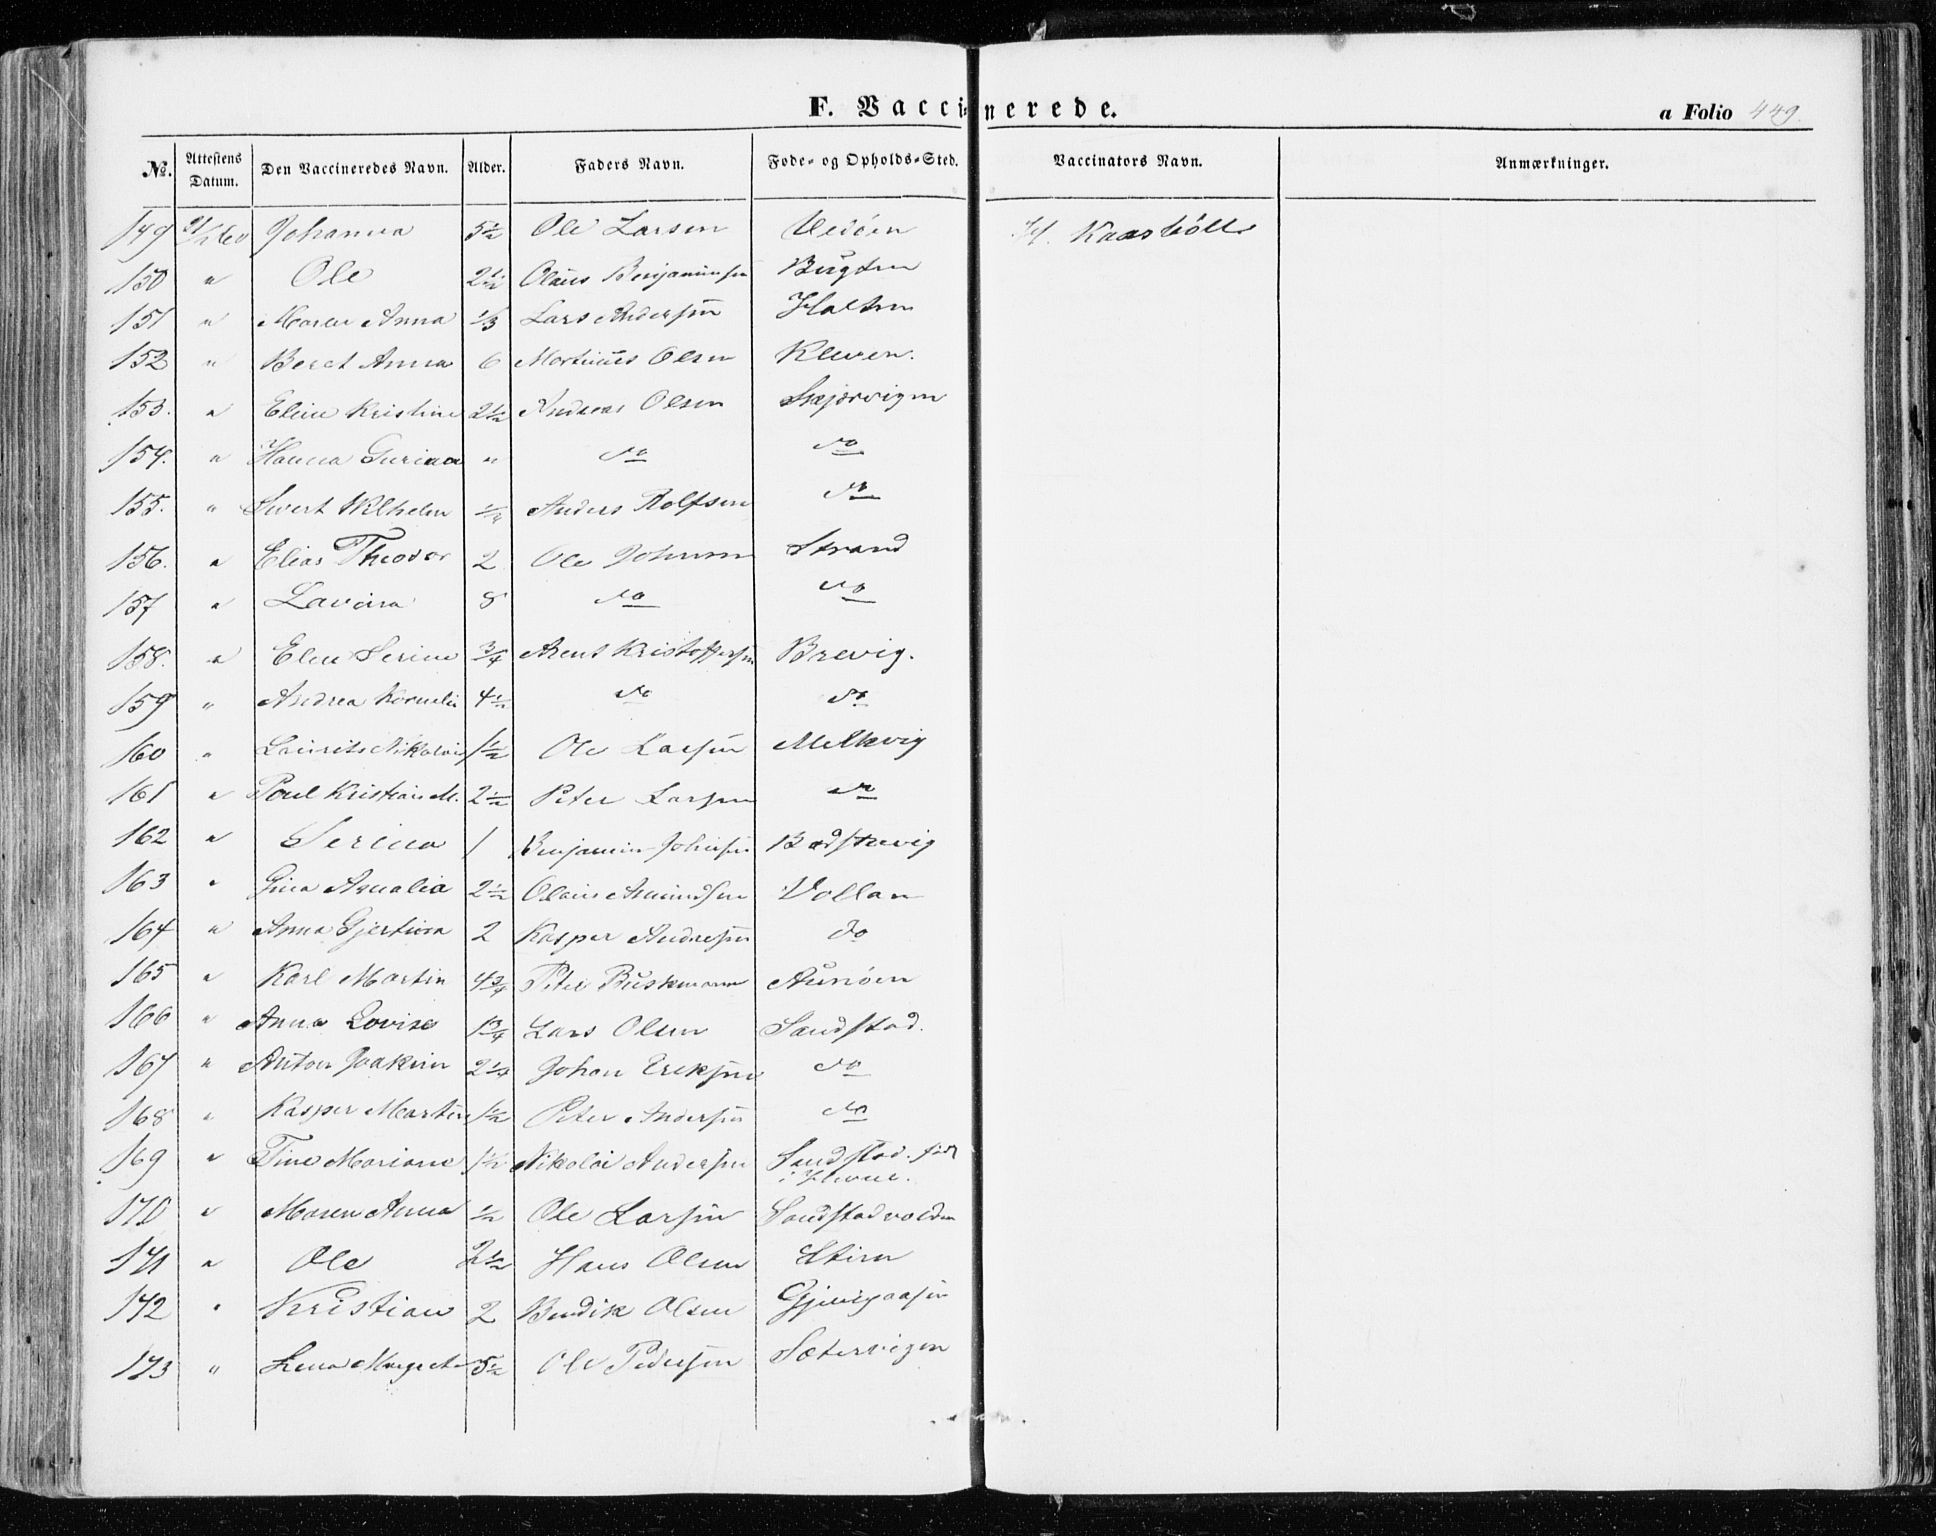 F. Vaccinerede.
a Folio 449.
No. Attestens Datum. Den Vaccineredes Navn. Alder. Faders Navn. Føde- og Opholds-Sted. Vaccinators Navn. Anmærkninger.
149 Johanna 5½ Ole Larsen H.
150 " Ole 2½ Olaus Benjaminsen Bugten
151 " Maren Anna ⅓ Lars Andersen Holten
152 " Beret Anna 6 Martinus Olsen Kleven.
153. " Eline Kristine 2½ Andreas Olsen Skjærvigen
154. " Hanna Gurina " do do
155. " Sivert Vilhelm Anders Rolfsen do
156. " Elias Theodor 2 Ole Johnsen Strand
157 " Lavina 8 do do
158. " Elen Serine ¾ Arent Kristoffersen Brevig.
159 " Andrea Kornelia 4½ do do
160 " Laurits Nikolai 1½ Ole Larsen Melkvig
161 " Poul Kristian M. 2½ Peter Larsen do
162 " Serina 1 Benjamin Johnsen Badstuvig
163 " Gina Amalia 2½ Olaus Amundsen Vollan
164 " Anna Gjertina 2 Kasper Andersen do
165 " Karl Martin 4¾ Peter Buskmann Aunøen
166 " Anna Lovise 1¾ Lars Olsen Sandstad.
167 " Anton Joakim 2¼ Johan Eriksen do
168 " Kasper Martin 1½ Peter Andersen do
169 " Tine Mariane 1½ Nikolai Andersen Sandstad.
170 " Maren Anna ½ Ole Larsen Sandstadvolden
171 " Ole 2½ Hans Olsen
172 " Kristian 2 Bendik Olsen
173 " Lena Margrete 5½ Ole Pedersen Sætervigen